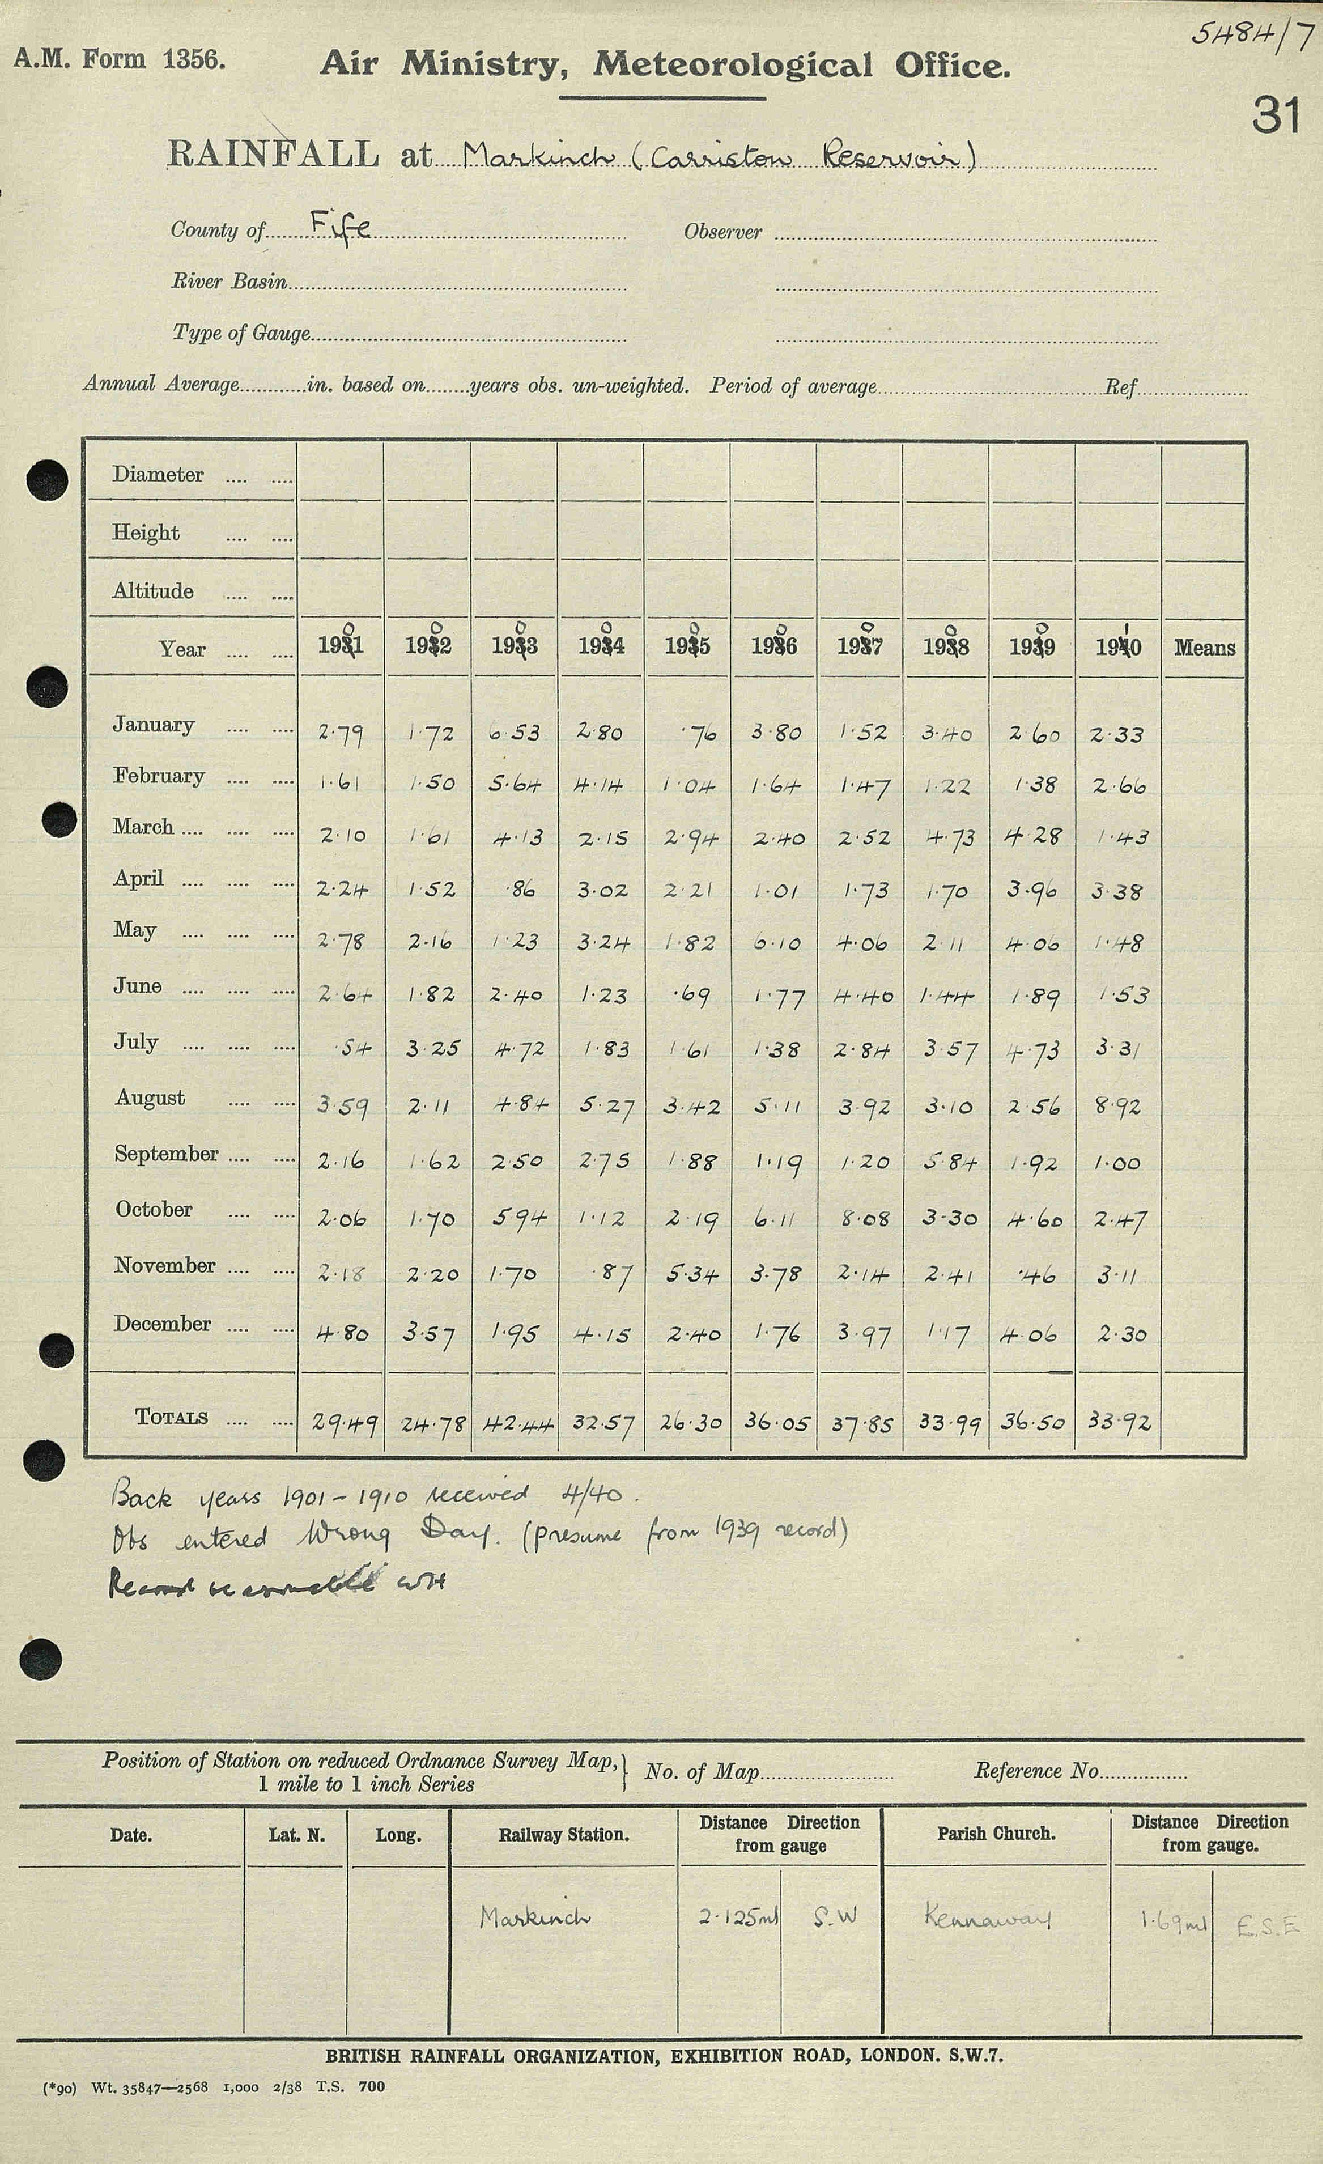 5484/7
A.M. Form 1356. Air Ministry, Meteorological Office.
31
RAINFALL at Markinch (Carriston Reservoir)
County of Fife Observer
River Basin
Type of Gauge
Annual Average in. based on years obs. un-weighted. Period of average Ref.
Diameter
Height
Altitude
Year 1901 1902 1903 1904 1905 1906 1907 1908 1909 1910 Means
January 2.79 1.72 6.53 2.80 .76 3.80 1.52 3.40 2.60 2.33
February 1.61 1.50 5.64 4.14 1.04 1.64 1.47 1.22 1.38 2.66
March 2.10 1.61 4.13 2.15 2.94 2.40 2.52 4.73 4.28 1.43
April 2.24 1.52 .86 3.02 2.21 1.01 1.73 1.70 3.96 3.38
May 2.78 2.16 1.23 3.24 1.82 6.10 4.06 2.11 4.06 1.48
June 2.64 1.82 2.40 1.23 .69 1.77 4.40 1.44 1.89 1.53
July .54 3.25 4.72 1.83 1.61 1.38 2.84 3.57 4.73 3.31
August 3.59 2.11 4.84 5.27 3.42 5.11 3.92 3.10 2.56 8.92
September 2.16 1.62 2.50 2.75 1.88 1.19 1.20 5.84 1.92 1.00
October 2.06 1.70 5.94 1.12 2.19 6.11 8.08 3.30 4.60 2.47
November 2.18 2.20 1.70 .87 5.34 3.78 2.14 2.41 .46 3.11
December 4.80 3.57 1.95 4.15 2.40 1.76 3.97 1.17 4.06 2.30
TOTALS 29.49 24.78 42.44 32.57 26.30 36.05 37.85 33.99 36.50 33.92
Back years 1901-1910 received 4/40.
Obs entered Wrong Day. (presume from 1939 record)
Record reasonable WH
Position of Station on reduced Ordnance Survey Map, } No. of Map Reference No.
1 mile to 1 inch Series
Date. Lat. N. Long. Railway Station. Distance Direction from gauge Parish Church. Distance Direction from gauge.
Markinch 2.125ml S.W Kennaway 1.69ml E.S.E
BRITISH RAINFALL ORGANIZATION, EXHIBITION ROAD, LONDON. S.W.7.
(*90) Wt. 35847—2568 1,000 2/38 T.S. 700